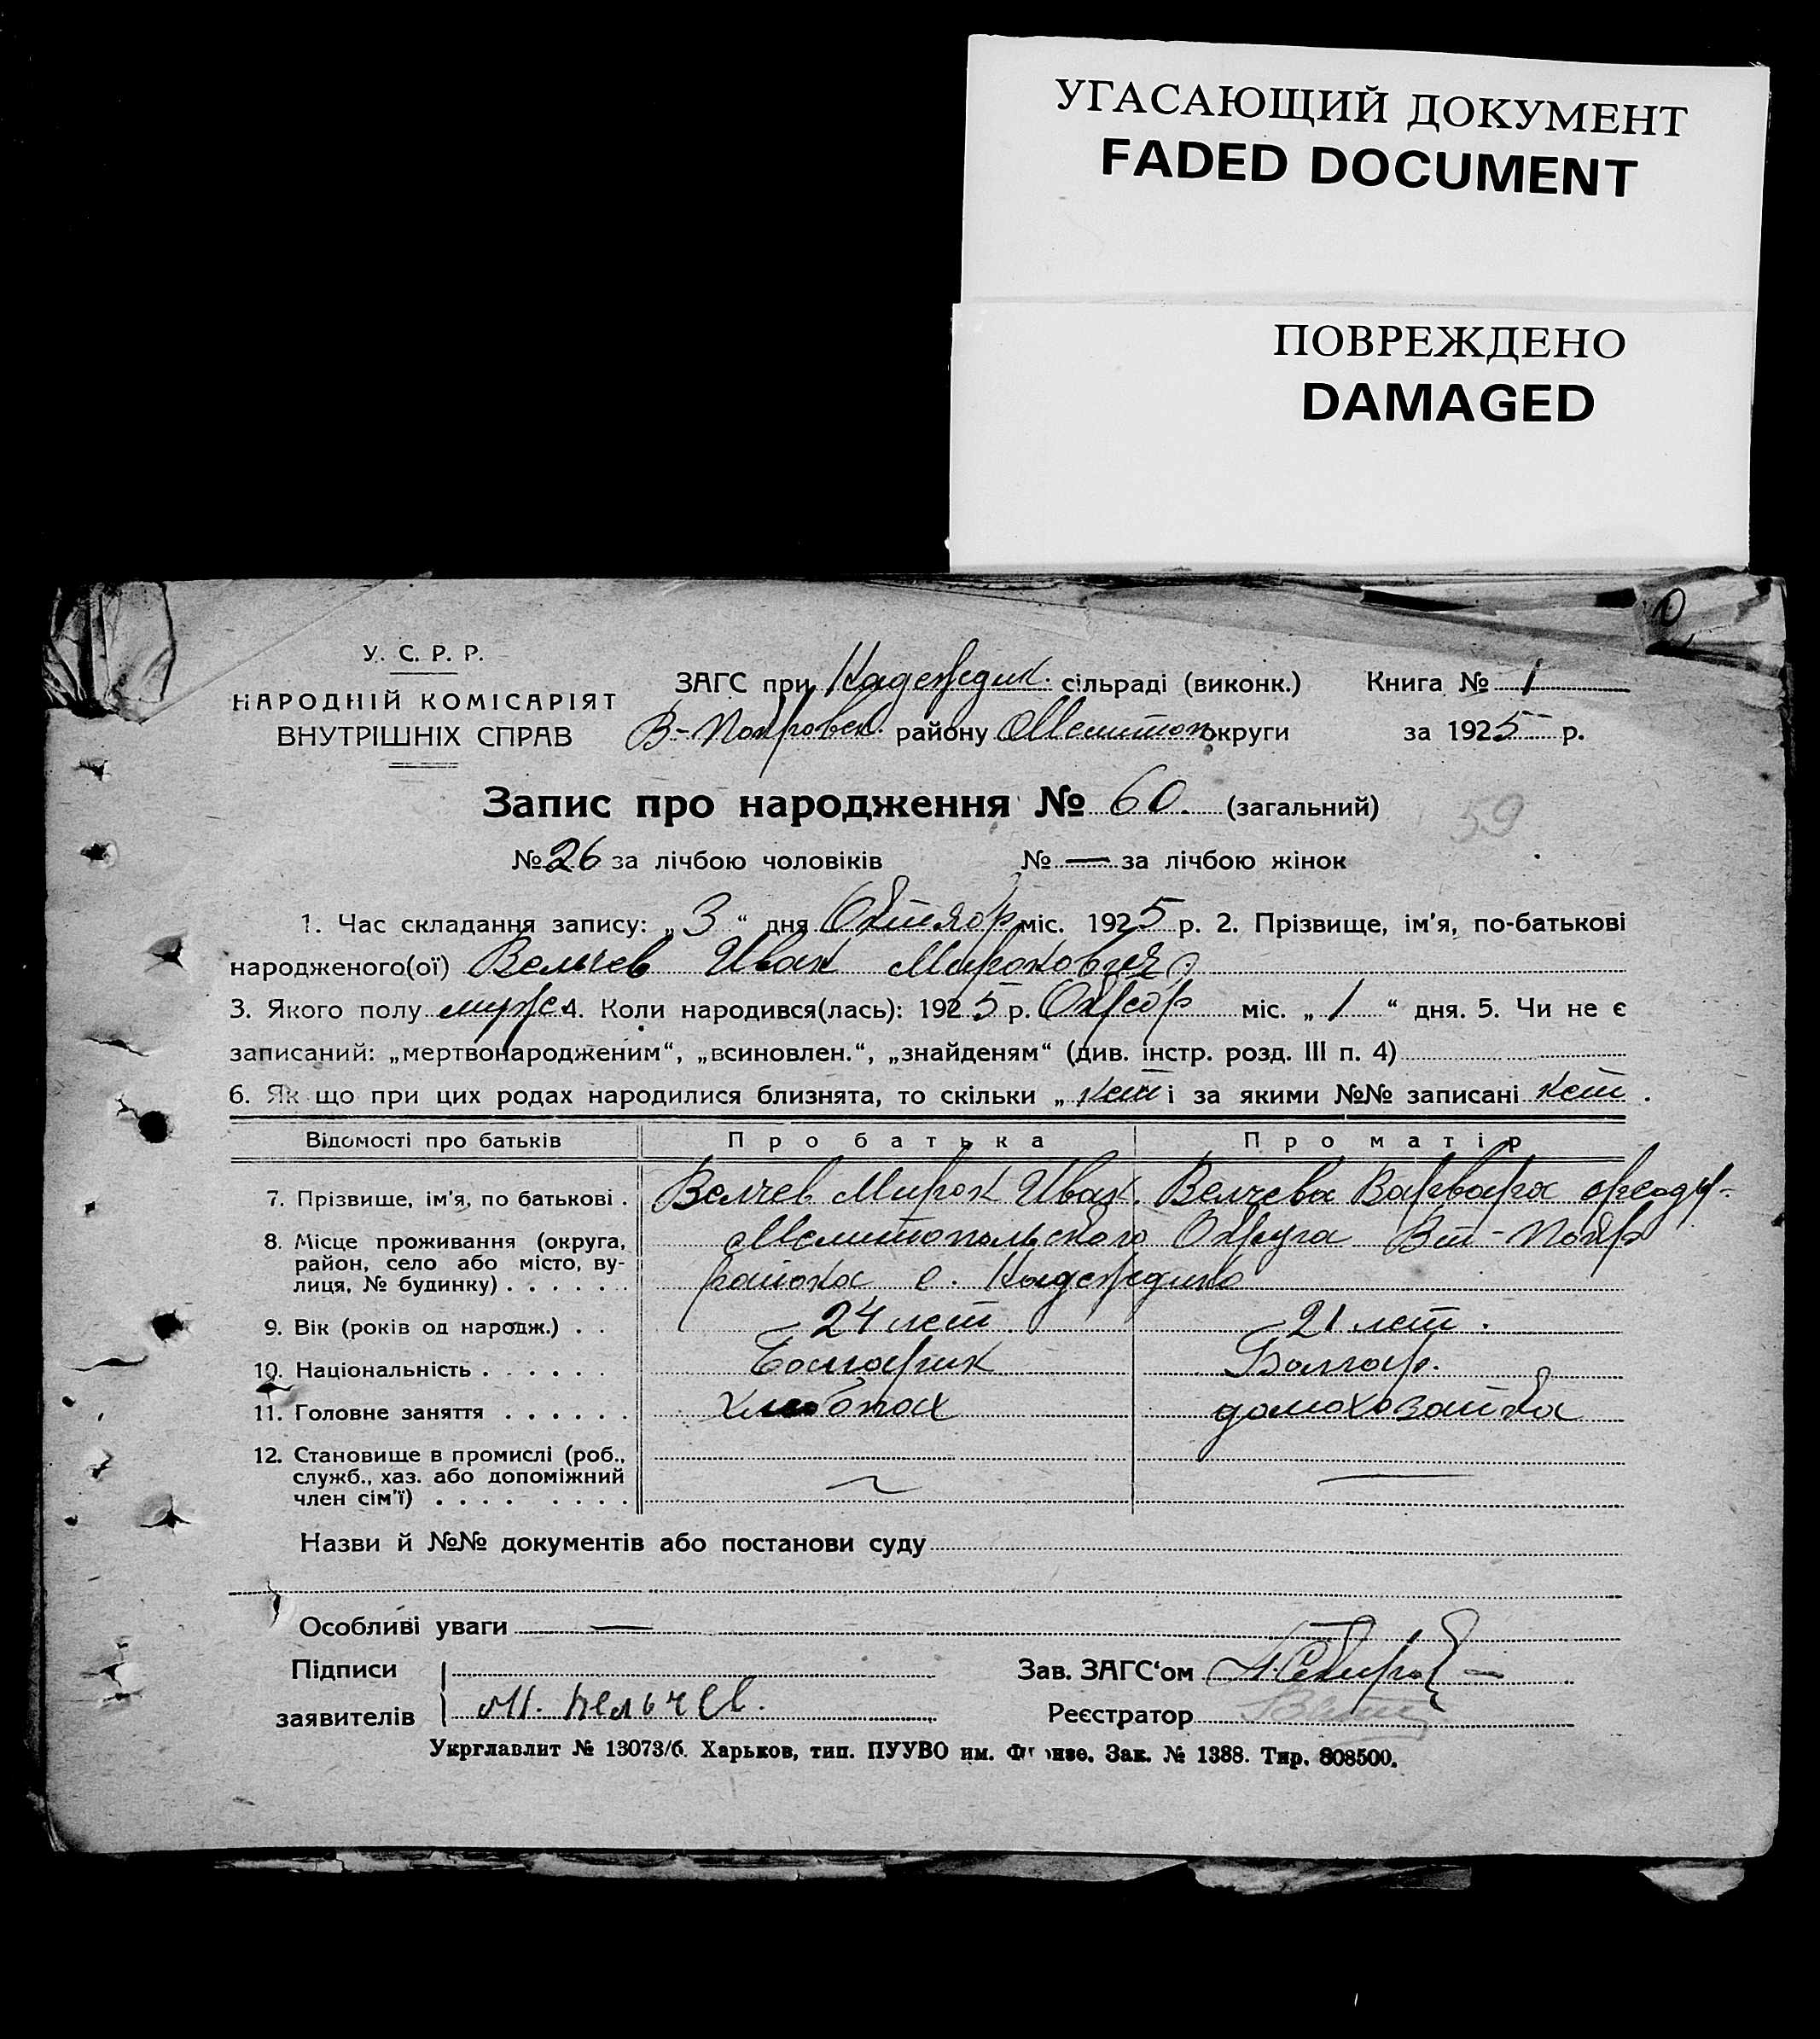 УГАСАЮЩИЙ ДОКУМЕНТ
FADED DOCUMENT
ПОВРЕЖДЕНО
DAMAGED
У. С. Р. Р.
НАРОДНІЙ КОМІСАРІЯТ
ВНУТРІШНІХ СПРАВ
ЗАГС при Надеждин. сільраді (виконк.) Книга № 1
В-Покровск. района Мелитоп округи за 1925 р.
Запис про народження № 60. (загальний)
59
№ 26 за лічбою чоловіків № — за лічбою жінок
1. Час складання запису: „3“ дня Октябр міс. 1925 р. 2. Прізвище, ім'я, по-батькові
народженого(ої) Вельчев Иван Миронович
3. Якого полу муж. 4. Коли народився(лась): 1925 р. міс. „1“ дня. 5. Чи не є
записаний: „мертвонародженим“, „всиновлен.“, „знайденям“ (див. інстр. розд. III п. 4)
6. Як що при цих родах народилися близнята, то скільки „нет і за якими №№ записані нет.
Відомості про батьків Про батька Про матір
7. Прізвище, ім'я, по батькові . Велчев Мирон Иван. Велчева Варвара
8. Місце проживання (округа, район, село або місто, вулиця, № будинку) . . . . . . Мелитопольского Округа Вт-Покр
района с. Надеждино
9. Вік (років од народж.) . . 24 лет 21 лет.
10. Національність . . . . . . Болгарин Болгар.
11. Головне заняття . . . . . . хлебопаш домохозайка
12. Становище в промислі (роб.,
служб., хаз. або допоміжний
член сім'ї) . . . . . . . . —
Назви й №№ документів або постанови суду
Особливі уваги —
Підписи
заявителів М. Вельчев.
Зав. ЗАГС'ом
Реєстратор
Укрглавлит № 13073/б. Харьков, тип. ПУУВО им. Фрунзе. Зак. № 1388. Тир. 808500.